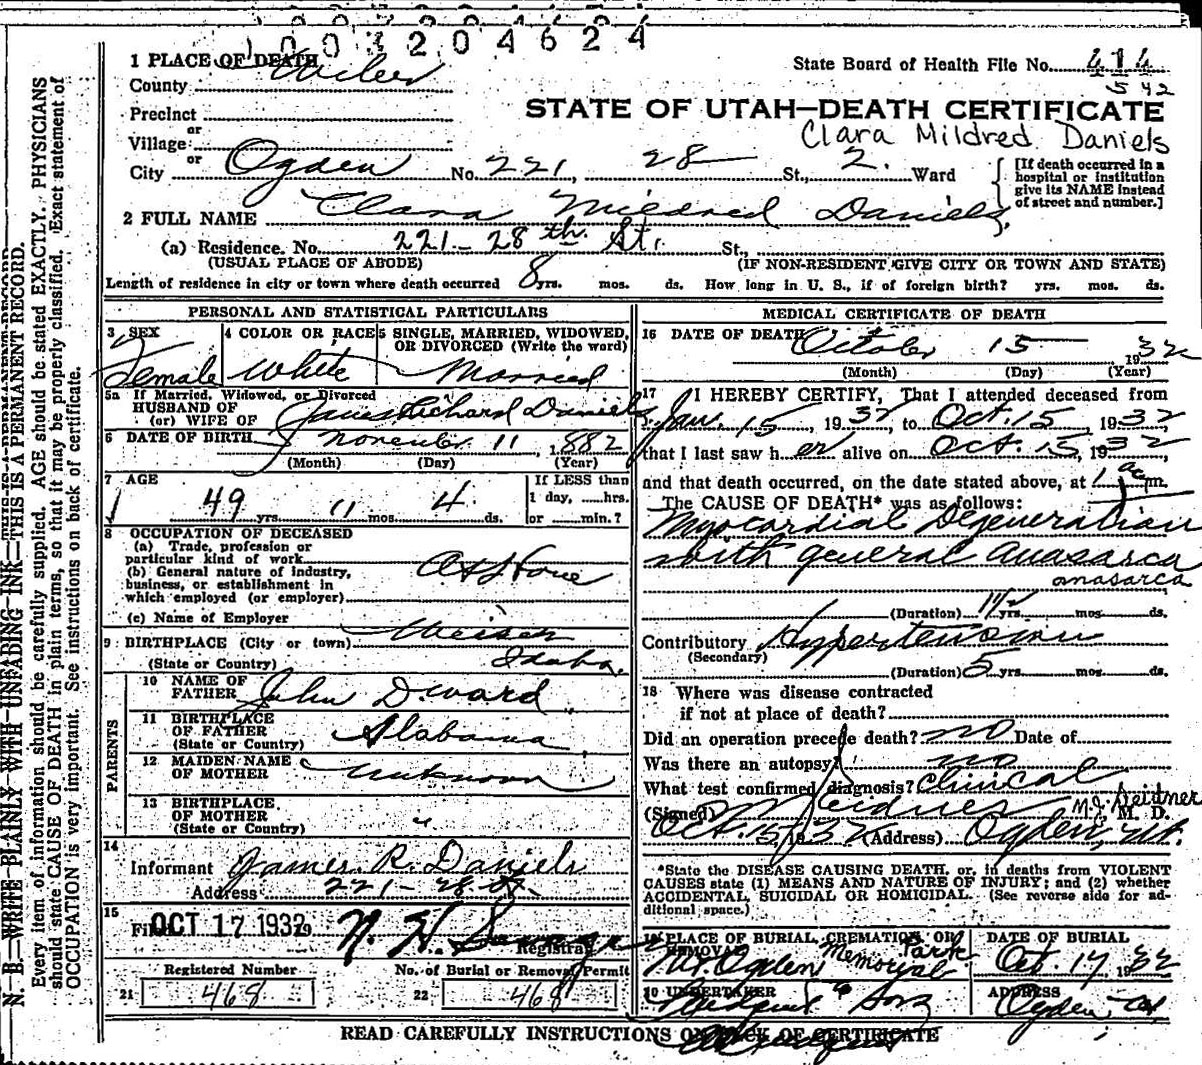 1003204624
1 PLACE OF DEATH
County Weber
State Board of Health File No. 414
542
Precinct
or
STATE OF UTAH—DEATH CERTIFICATE
Village
Clara Mildred Daniels
or
City Ogden No. 221, 28 St., 2. Ward
[If death occurred in a hospital or institution give its NAME instead of street and number.]
2 FULL NAME Clara Mildred Daniels,
(a) Residence. No. 221-28th St. St.,
(USUAL PLACE OF ABODE) (IF NON-RESIDENT GIVE CITY OR TOWN AND STATE)
Length of residence in city or town where death occurred 8 yrs. mos. ds. How long in U. S., if of foreign birth? yrs. mos. ds.
PERSONAL AND STATISTICAL PARTICULARS
3 SEX Female
4 COLOR OR RACE White
5 SINGLE, MARRIED, WIDOWED, OR DIVORCED (Write the word) Married
5a If Married, Widowed, or Divorced
HUSBAND OF
(or) WIFE OF James Richard Daniels
6 DATE OF BIRTH November 11, 1882
(Month) (Day) (Year)
7 AGE
49 yrs. 11 mos. 4 ds.
If LESS than
1 day, ......hrs.
or ......min.?
8 OCCUPATION OF DECEASED
(a) Trade, profession or
particular kind of work
(b) General nature of industry,
business, or establishment in
which employed (or employer)
At Home
(c) Name of Employer
9 BIRTHPLACE (City or town) Weiser
(State or Country) Idaho.
PARENTS
10 NAME OF FATHER John D. Ward
11 BIRTHPLACE OF FATHER (State or Country) Alabama
12 MAIDEN NAME OF MOTHER Unknown
13 BIRTHPLACE OF MOTHER (State or Country) "
14
Informant James R. Daniels
Address 221-28 St.
15 Filed OCT 17 1932 19
Registrar
Registered Number
21 468
No. of Burial or Removal Permit
22 468
MEDICAL CERTIFICATE OF DEATH
16 DATE OF DEATH October 15 1932
(Month) (Day) (Year)
17 I HEREBY CERTIFY, That I attended deceased from
Jan. 15, 1932, to Oct. 15, 1932
that I last saw her alive on Oct. 15, 1932
and that death occurred, on the date stated above, at 1 a.m.
The CAUSE OF DEATH* was as follows:
Myocardial Degeneration
with general anasarca
anasarca
(Duration) 1 1/2 yrs. mos. ds.
Contributory Hypertension
(Secondary)
(Duration) 5 yrs. mos. ds.
18 Where was disease contracted
if not at place of death?
Did an operation precede death? no Date of
Was there an autopsy? no
What test confirmed diagnosis? Clinical
(Signed) M J Seidner M.J. Seidner M. D.
Oct. 15, 1932 (Address) Ogden, Ut.
*State the DISEASE CAUSING DEATH, or, in deaths from VIOLENT
CAUSES state (1) MEANS AND NATURE OF INJURY; and (2) whether
ACCIDENTAL, SUICIDAL OR HOMICIDAL. (See reverse side for ad-
ditional space.)
PLACE OF BURIAL, CREMATION, OR REMOVAL
Mt. Ogden Memorial Park
DATE OF BURIAL
Oct. 17, 1932
UNDERTAKER
& Sons
ADDRESS
Ogden, Ut.
READ CAREFULLY INSTRUCTIONS ON BACK OF CERTIFICATE
N. B.—WRITE PLAINLY WITH UNFADING INK—THIS IS A PERMANENT RECORD.
Every item of information should be carefully supplied. AGE should be stated EXACTLY. PHYSICIANS
should state CAUSE OF DEATH in plain terms, so that it may be properly classified. Exact statement of
OCCUPATION is very important. See instructions on back of certificate.